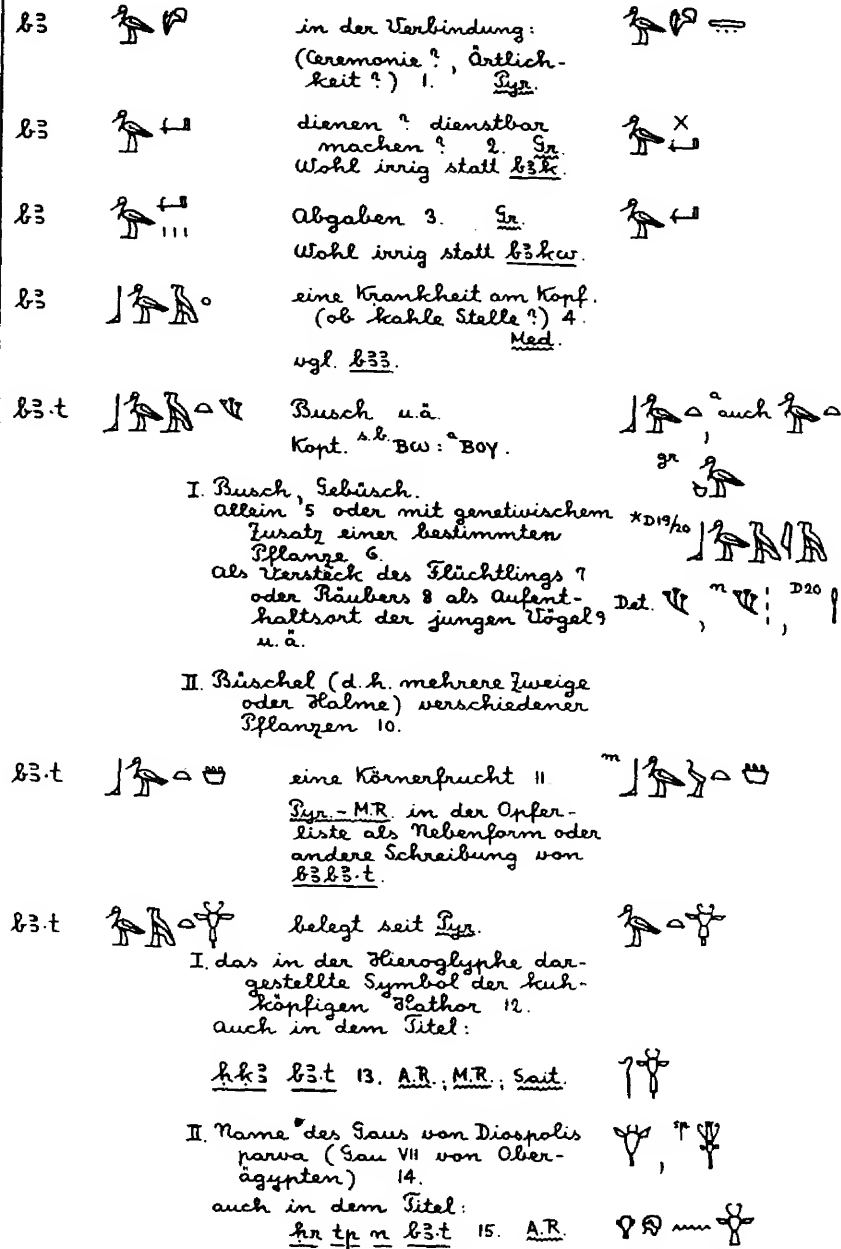 bꜣ in der Verbindung:
(Ceremonie?, Örtlich-
keit?) 1. Pyr.
bꜣ dienen? dienstbar
machen? 2. Gr.
Wohl irrig statt bꜣk.
bꜣ Abgaben 3. Gr.
Wohl irrig statt bꜣkw.
bꜣ eine Krankheit am Kopf.
(ob kahle Stelle?) 4.
Med.
vgl. bꜣꜣ.
bꜣ.t Busch u.ä. a auch
Kopt. s.b. ⲃⲱ : a ⲃⲟⲩ. gr
I. Busch, Gebüsch.
Allein 5 oder mit genetivischem *D19/20
Zusatz einer bestimmten
Pflanze 6.
Als Versteck des Flüchtlings 7
oder Räubers 8 als Aufent- Det. , n , D20
haltsort der jungen Vögel 9
u.ä.
II. Büschel (d.h. mehrere Zweige
oder Halme) verschiedener
Pflanzen 10.
bꜣ.t eine Körnerfrucht 11. m
Pyr.-M.R. in der Opfer-
liste als Nebenform oder
andere Schreibung von
bꜣbꜣ.t.
bꜣ.t belegt seit Pyr.
I. das in der Hieroglyphe dar-
gestellte Symbol der kuh-
köpfigen Hathor 12.
auch in dem Titel:
ḥḳꜣ bꜣ.t 13. A.R.; M.R.; Sait.
II. Name des Gaus von Diospolis
parva (Gau VII von Ober- , sp
ägypten) 14.
auch in dem Titel:
ḥr tp n bꜣ.t 15. A.R.